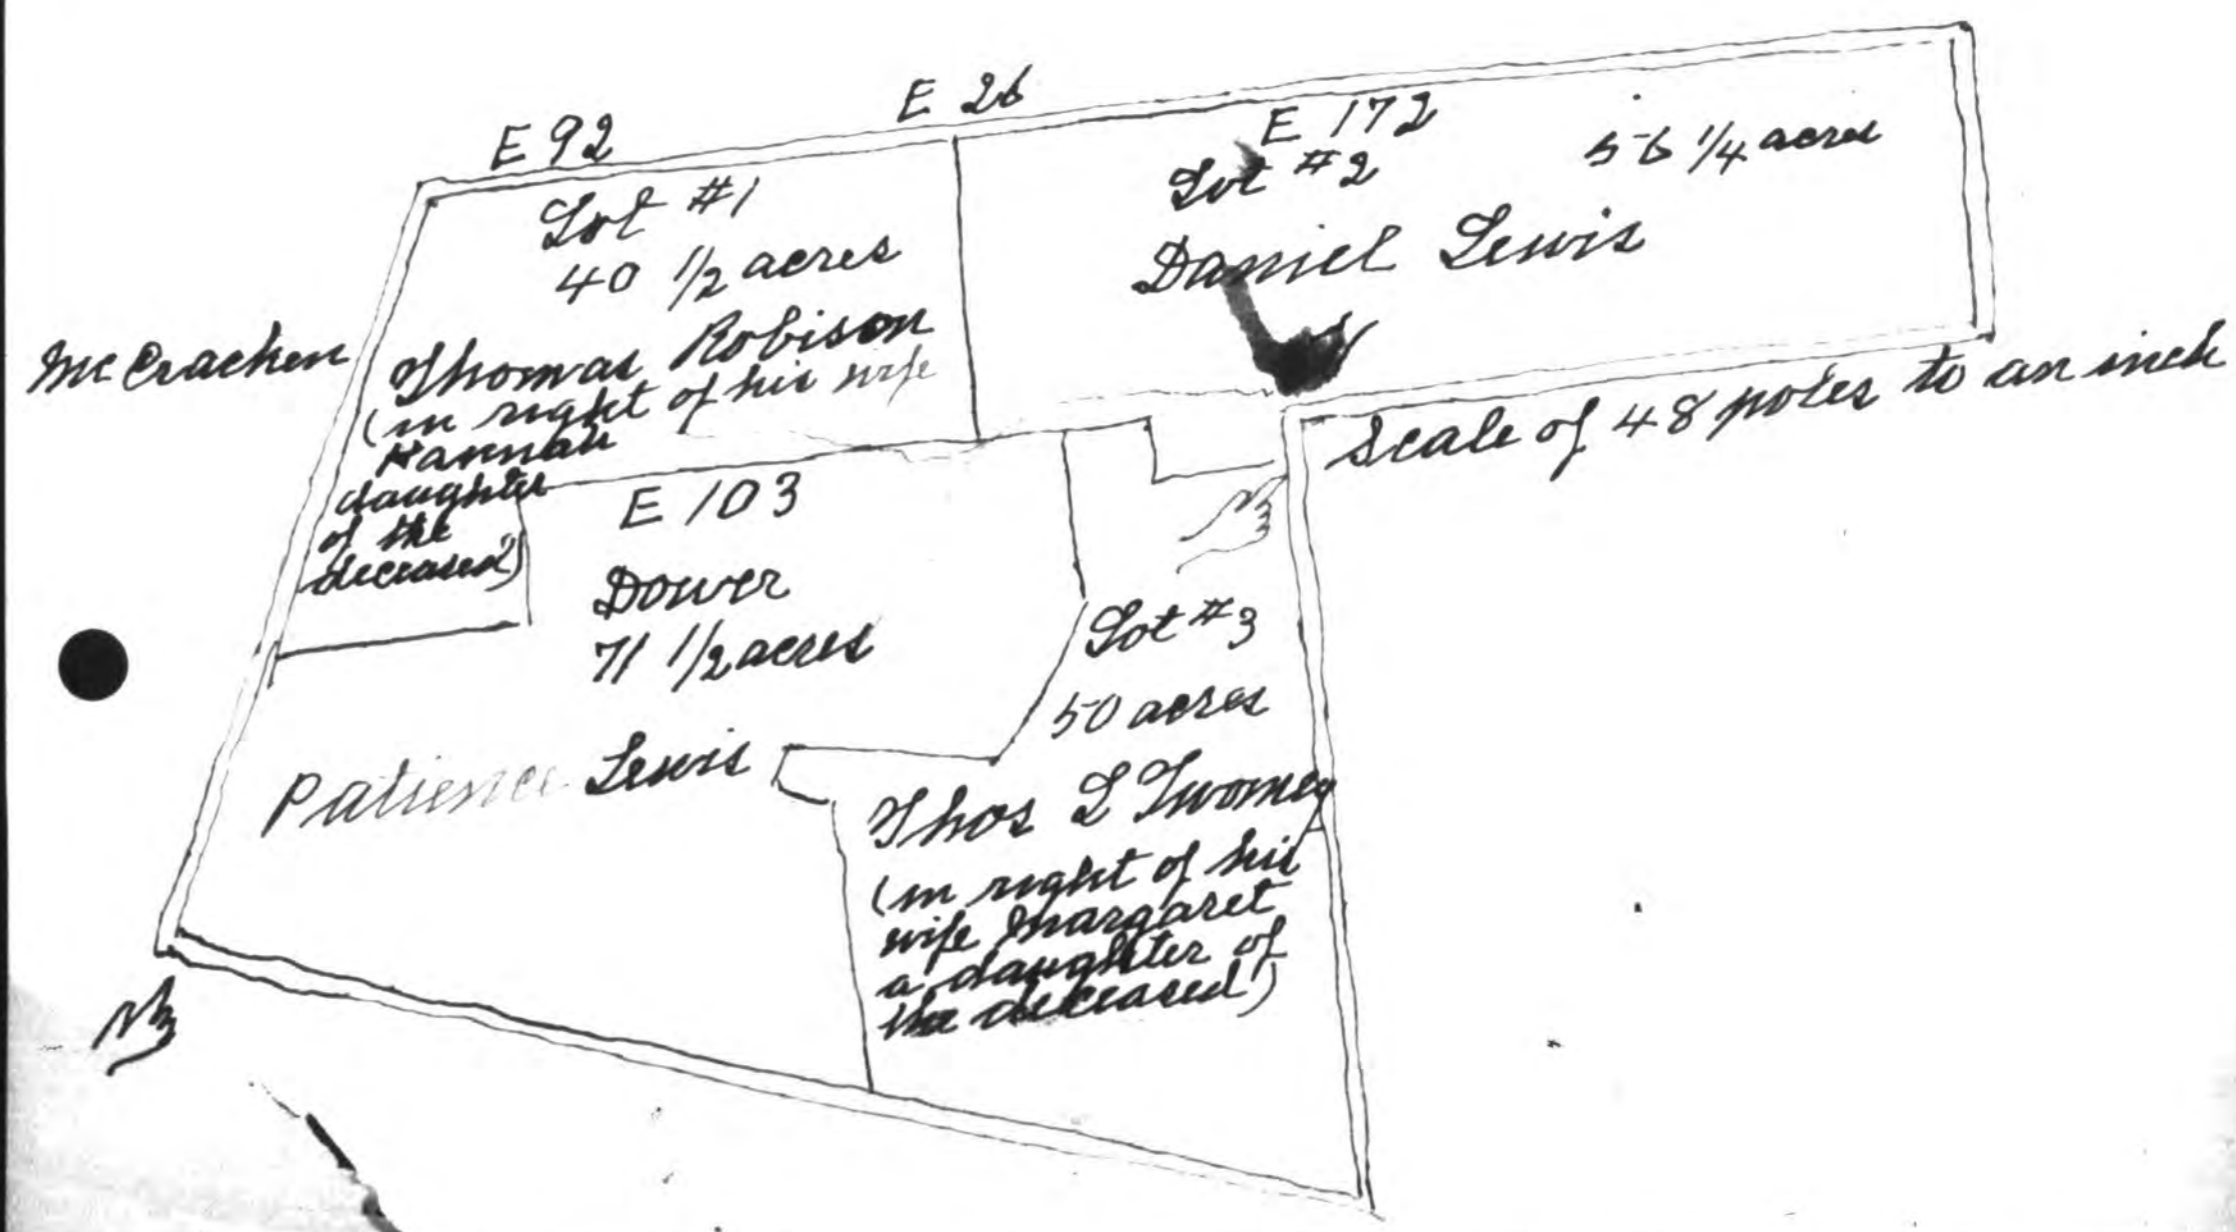 E 92
E 26
E 172
Lot #1
40 1/2 acres
Thomas Robison
(in right of his wife
Hannah
daughter
of the
deceased)
Lot #2
56 1/4 acres
Daniel Lewis
McCracken
Scale of 48 poles to an inch
E 103
Dower
71 1/2 acres
Patience Lewis
Lot #3
50 acres
Thos L Twomey
(in right of his
wife Margaret
a daughter of
the deceased)